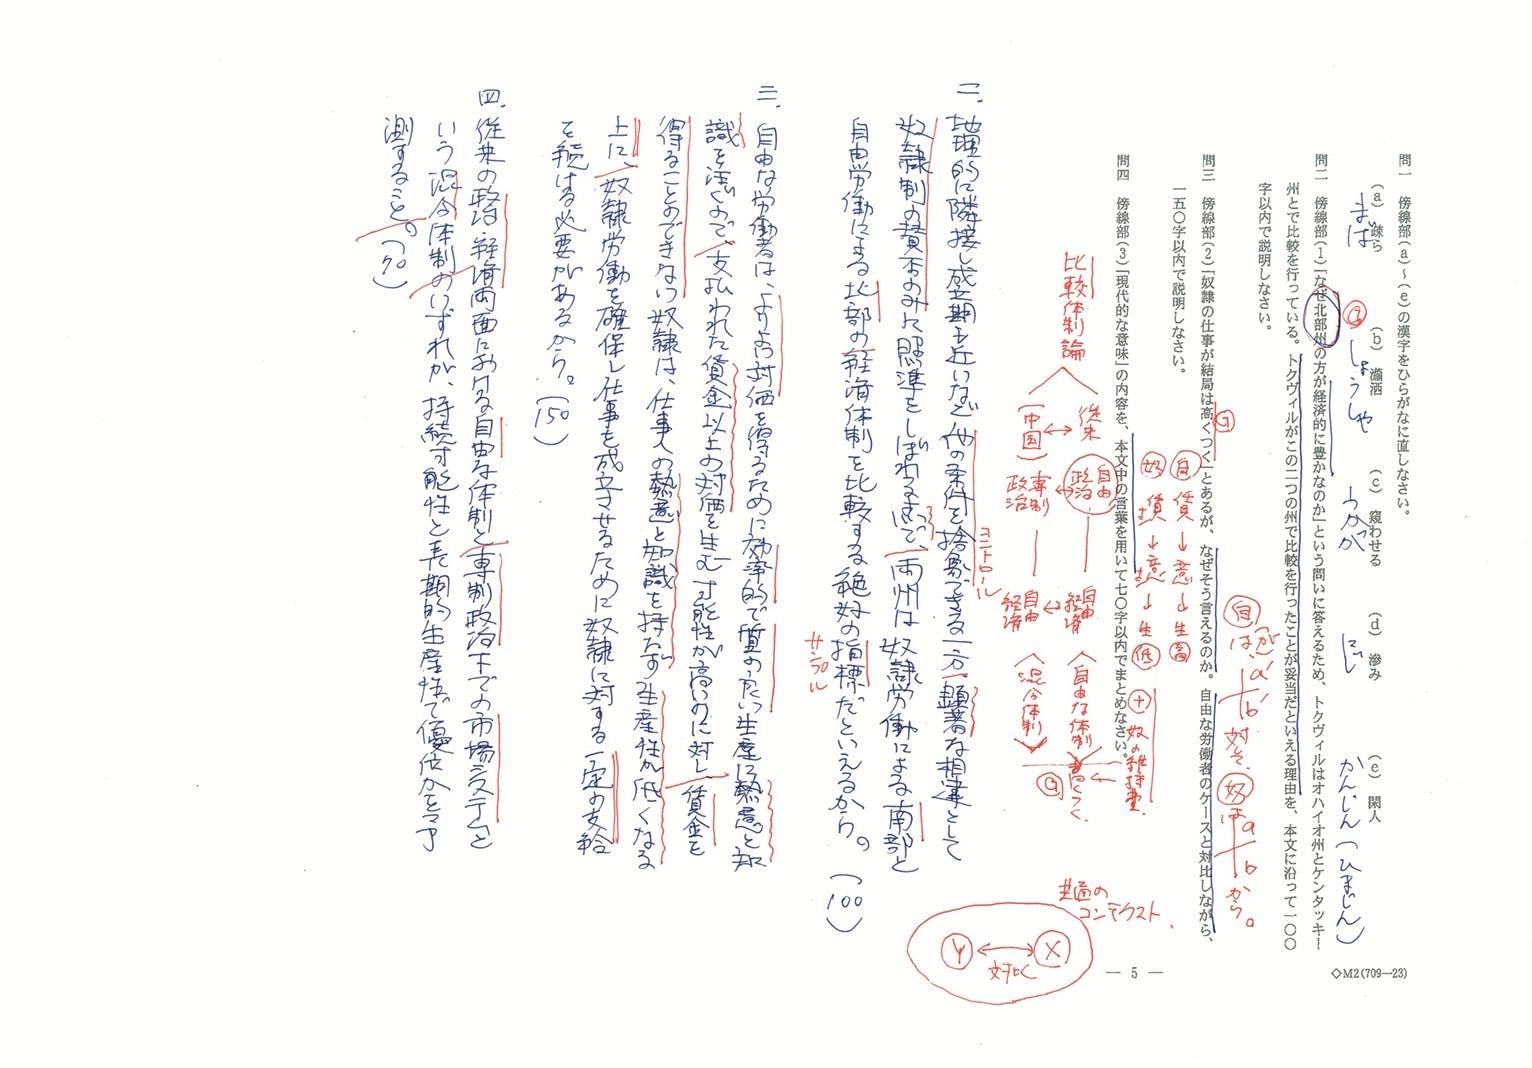 問一　傍線部(a)～(e)の漢字をひらがなに直しなさい。
(a)　疎ら　(b)　瀟洒　(c)　窺わせる　(d)　滲み　(e)　閑人
まば　しょうしゃ　うかが　にじ　かんじん(ひまじん)
問二　傍線部(1)「なぜ北部州の方が経済的に豊かなのか」という問いに答えるため、トクヴィルはオハイオ州とケンタッキー
州とで比較を行っている。トクヴィルがこの二つの州で比較を行ったことが妥当だといえる理由を、本文に沿って一〇〇
字以内で説明しなさい。
自(が)は、a'/b' 対そ、奴はa/bから。
問三　傍線部(2)「奴隷の仕事が結局は高くつく」とあるが、なぜそう言えるのか。自由な労働者のケースと対比しながら、
一五〇字以内で説明しなさい。
自　賃→意→生高
奴　賃→意→生低　＋　奴の維持費
高くつく
問四　傍線部(3)「現代的な意味」の内容を、本文中の言葉を用いて七〇字以内でまとめなさい。
比較体制論
従来↔(中国)
自由政治↔専制政治
自由経済↔自由経済
自由な体制　混合体制
共通の
コンテクスト
X↔Y
対比
— 5 —
◇M2(709—23)
二、地理的に隣接し成立期も近いなど他の条件を捨象できる一方、顕著な相違として
奴隷制の賛否のみに照準をしぼれるので、両州は奴隷労働による南部と
自由労働による北部の経済体制を比較する絶好の指標だといえるから。(100)
コントロール
サンプル
三、自由な労働者は、よりよい対価を得るために効率的で質の高い生産に熱意と知
識を注ぐので、支払われた賃金以上の対価を生む可能性が高いのに対し、賃金を
得ることのできない奴隷は、仕事への熱意と知識を持たず生産性が低くなる
上に、奴隷労働を確保し仕事を成立させるために奴隷に対する一定の支給
を続ける必要があるから。(150)
四、従来の政治・経済両面における自由な体制と専制政治下での市場システムと
いう混合体制のいずれが、持続可能性と長期的生産性で優位かを予
測すること。(70)